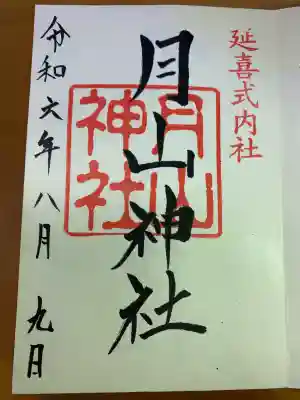 延喜式内社
月山神社
月山
神社
令和六年八月九日